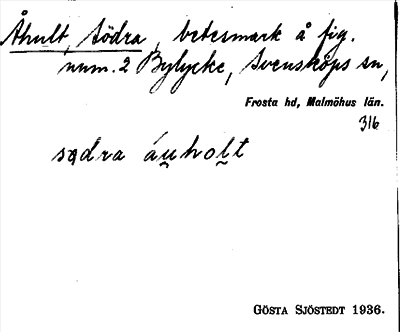 Åhult, Södra, betesmark å fig.
num. 2 Bylycke, Svensköps sn,
Frosta hd, Malmöhus län.
316
sɑdra áu̯holt
GÖSTA SJÖSTEDT 1936.